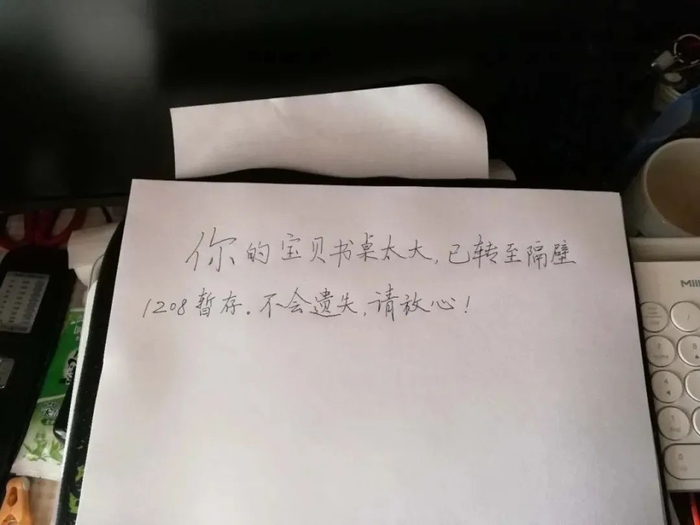 你的宝贝书桌太大,已转至隔壁
1208暂存.不会遗失,请放心!